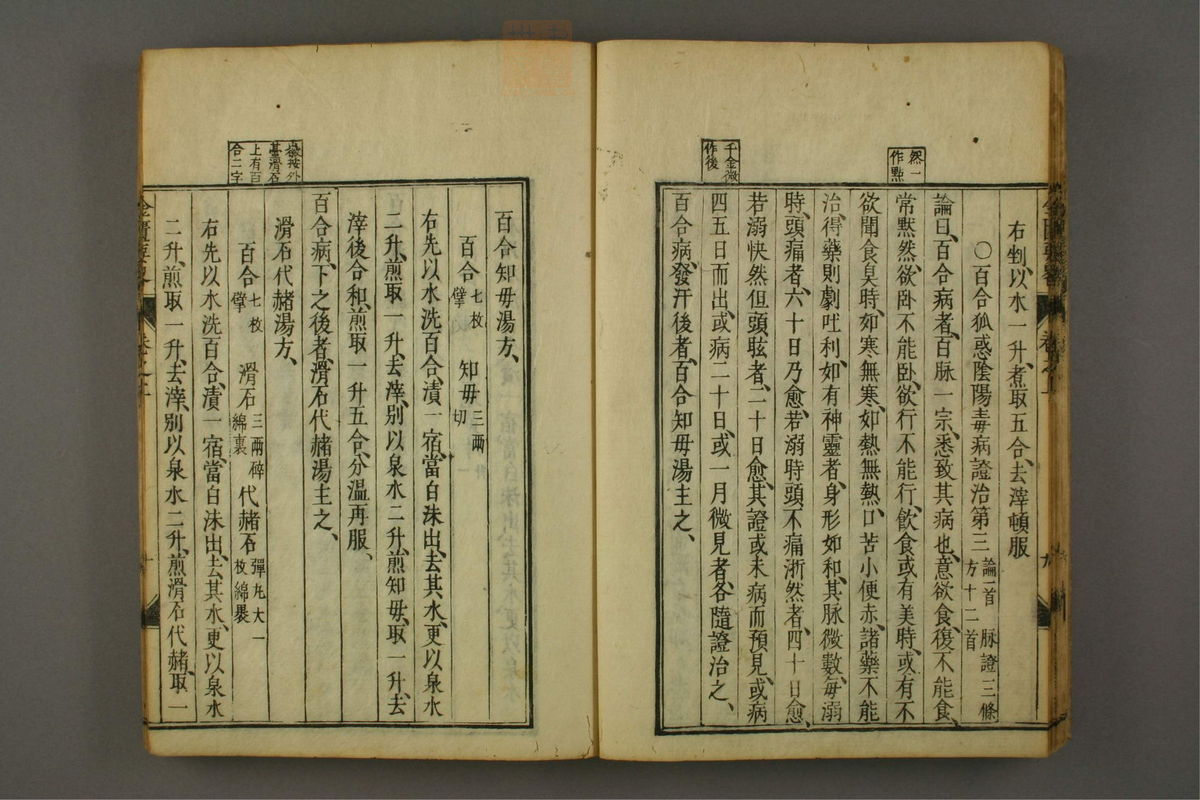 然一
作㸃
千金微
作後
右剉以水一升煮取五合去滓頓服
〇百合狐惑陰陽毒病證治第三 論一首 脉證三條 方十二首
論曰百合病者百脉一宗悉致其病也意欲食復不能食
常默然欲卧不能卧欲行不能行飲食或有美時或有不
欲聞食臭時如寒無寒如熱無熱口苦小便赤諸藥不能
治得藥則劇吐利如有神靈者身形如和其脉微數每溺
時頭痛者六十日乃愈若溺時頭不痛淅然者四十日愈
若溺快然但頭眩者二十日愈其證或未病而預見或病
四五日而出或病二十日或一月微見者各隨證治之
百合病發汗後者百合知母湯主之
百合知毋湯方
百合 七枚擘 知毋 三兩切
右先以水洗百合漬一宿當白沫出去其水更以泉水
二升煎取一升去滓別以泉水二升煎知毋取一升去
滓後合和煎取一升五合分溫再服
百合病下之後者滑石代赭湯主之
滑石代赭湯方
百合 七枚擘 滑石 三兩碎綿裹 代赭石 彈丸大一枚綿褁
右先以水洗百合漬一宿當白沫出去其水更以泉水
二升煎取一升去滓別以泉水二升煎滑石代赭取一
按外
臺滑石
上有百
合二字
金匱要畧